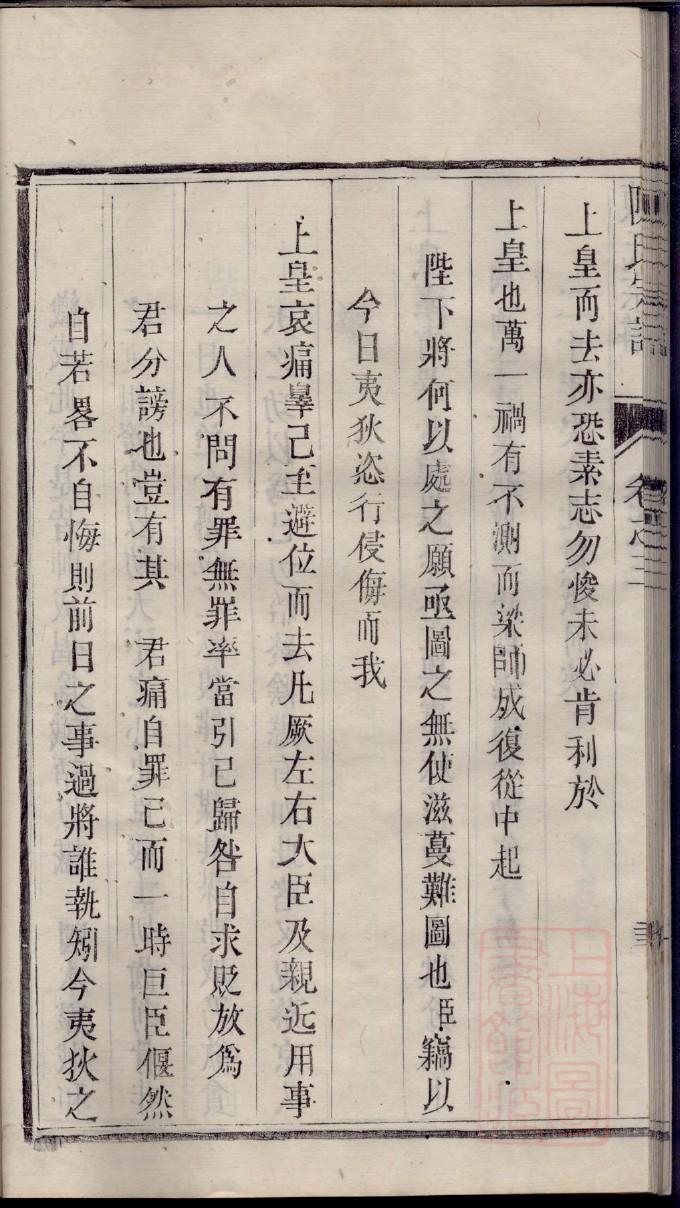 上皇而去亦恐素志勿悛未必肯利於
上皇也萬一禍有不測而梁師成復從中起
陛下將何以處之願亟圖之無使滋蔓難圖也臣竊以
今日夷狄恣行侵侮而我
上皇哀痛辠己至避位而去凡厥左右大臣及親近用事
之人不問有罪無罪率當引已歸咎自求貶放爲
君分謗也豈有其　君痛自罪己而一時巨臣偃然
自若畧不自悔則前日之事過將誰執矧今夷狄之
卷之三
上海圖